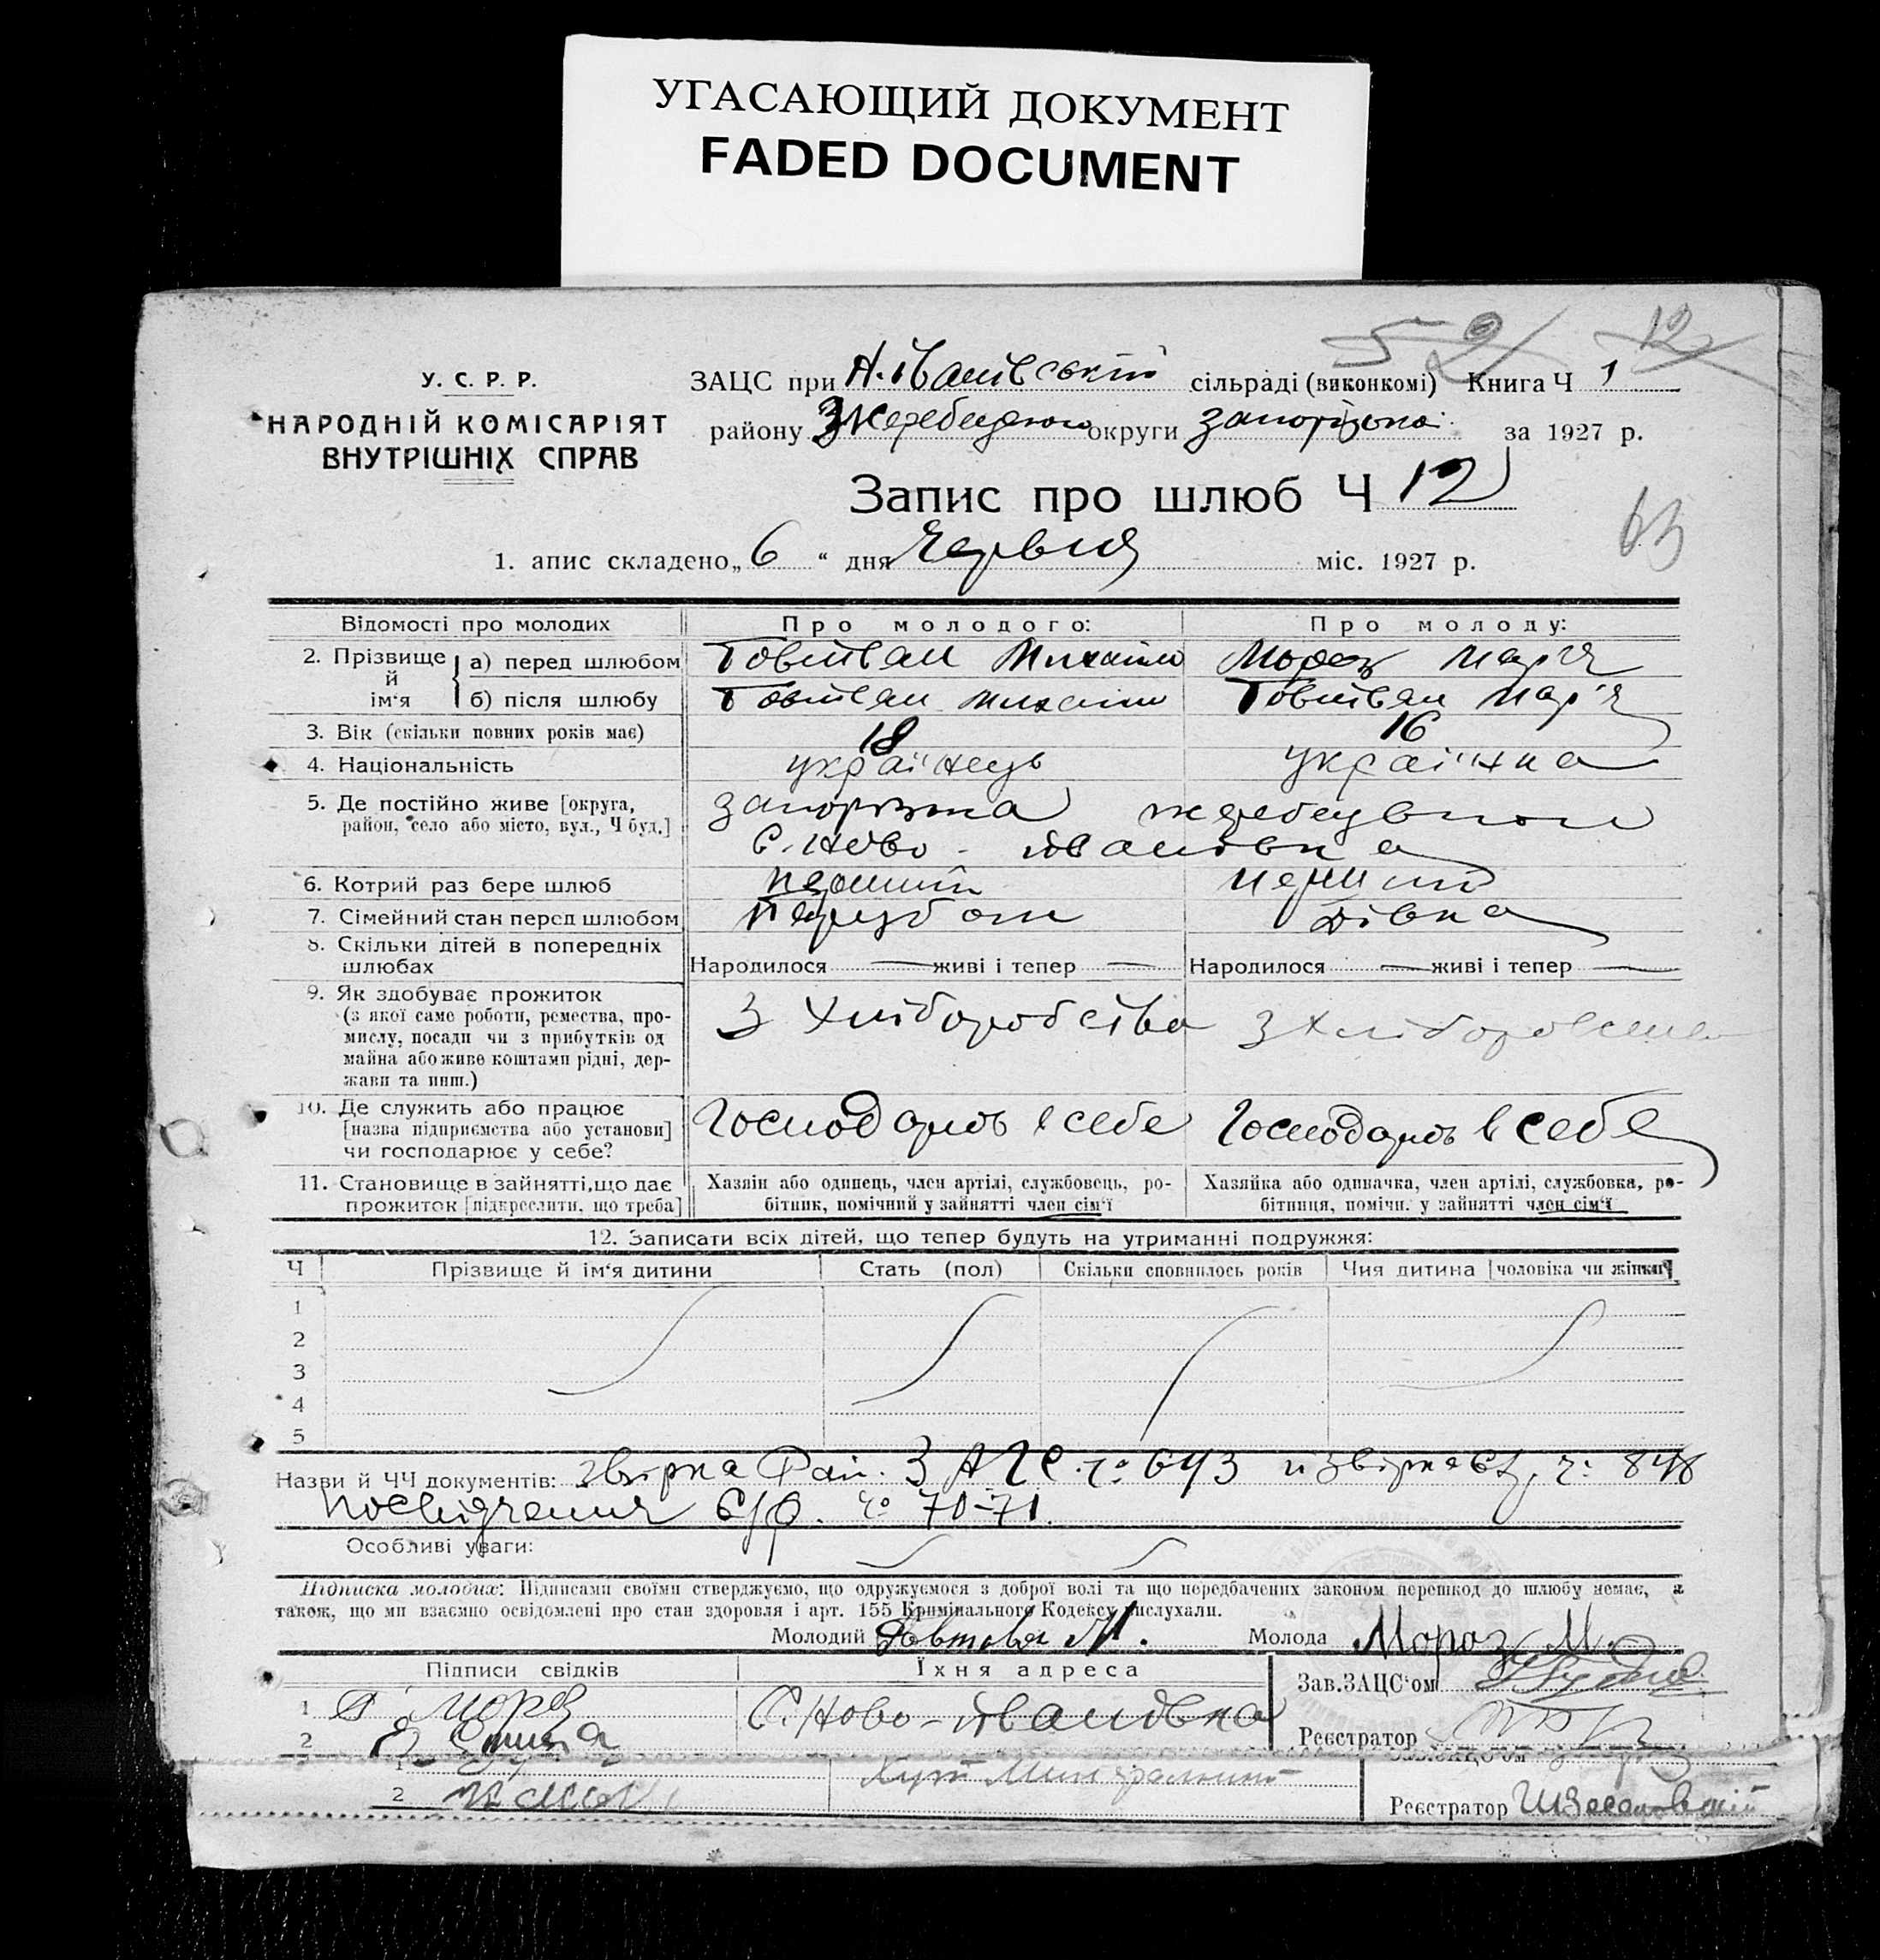 УГАСАЮЩИЙ ДОКУМЕНТ
FADED DOCUMENT
52 12
У. С. Р. Р.
НАРОДНІЙ КОМІСАРІЯТ
ВНУТРІШНІХ СПРАВ
ЗАЦС при Н.Іванівській сільраді (виконкомі) Книга Ч 1
району Жеребецького округи Запорізька за 1927 р.
Запис про шлюб Ч 12
63
1. апис складено „ 6 “ дня Червня міс. 1927 р.
Відомості про молодих Про молодого: Про молоду:
2. Прізвище й ім‘я
а) перед шлюбом Товтван Михайло Мороз Мар'я
б) після шлюбу Товтван Михайло Товтван Мар'я
3. Вік (скільки повних років має) 18 16
4. Національність українець українка
5. Де постійно живе [округа, район, село або місто, вул., Ч буд.] Запорізька
С. Ново-Іванівка
6. Котрий раз бере шлюб перший перший
7. Сімейний стан перед шлюбом парубок дівка
8. Скільки дітей в попередніх шлюбах Народилося — живі і тепер — Народилося — живі і тепер —
9. Як здобуває прожиток
(з якої саме роботи, ремества, про-
мислу, посади чи з прибутків од
майна або живе коштами рідні, дер-
жави та инш.)
З хліборобства З хліборобства
10. Де служить або працює
[назва підприємства або установи]
чи господарює у себе?
Господарює в себе Господарює в себе
11. Становище в зайнятті, що дає
прожиток [підкреслити, що треба]
Хазяїн або одинець, член артілі, службовець, ро-
бітник, помічний у зайнятті член сім‘ї
Хазяйка або одиначка, член артілі, службовка, ро-
бітниця, помічн. у зайнятті член сім‘ї
12. Записати всіх дітей, що тепер будуть на утриманні подружжя:
Ч Прізвище й ім‘я дитини Стать (пол) Скільки сповнилось років Чия дитина [чоловіка чи жінки]
1
2
3
4
5
Назви й ЧЧ документів: звірка Рай. ЗАГС ч: 643 и звірка ч: 848
Посвідчення ч: 70-71.
Особливі уваги:
Підписка молодих: Підписами своїми стверджуємо, що одружуємося з доброї волі та що передбачених законом перешкод до шлюбу немає, а
також, що ми взаємно освідомлені про стан здоровля і арт. 155 Кримінального Кодексу вислухали.
Молодий М. Молода Мороз М.
Підписи свідків Їхня адреса Зав.ЗАЦС‘ом
1 Мороз С. Ново-Іванівка
2 Реєстратор
1 Хут.
2 Реєстратор